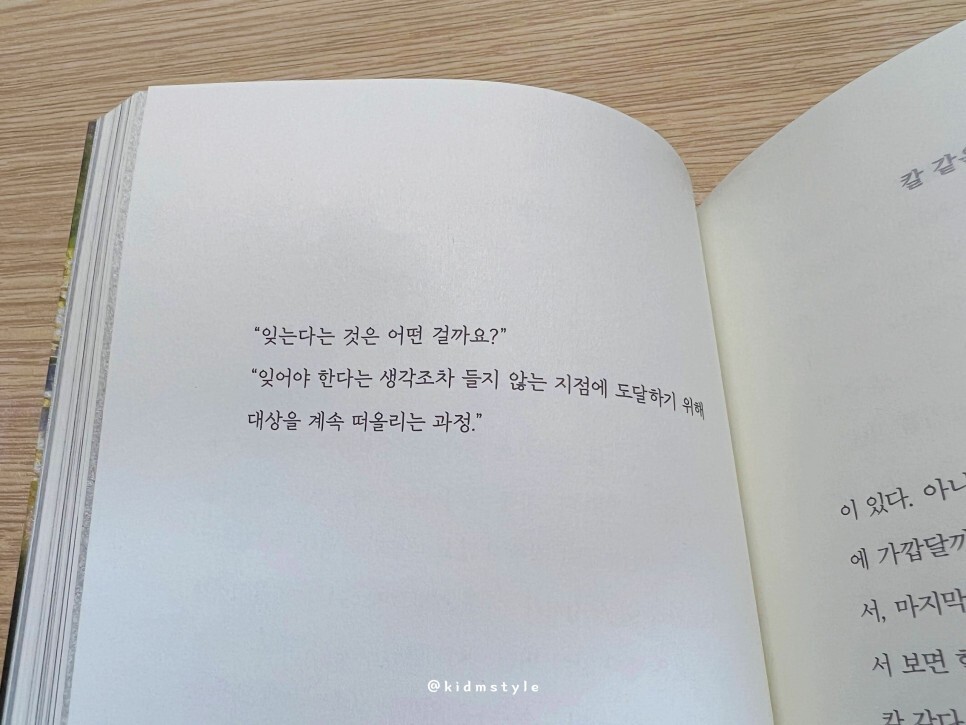 “잊는다는 것은 어떤 걸까요?”
“잊어야 한다는 생각조차 들지 않는 지점에 도달하기 위해
대상을 계속 떠올리는 과정.”
칼 같은
이 있다. 아니
에 가깝달까
서, 마지막
서 보면
칼 같다
@kidmstyle